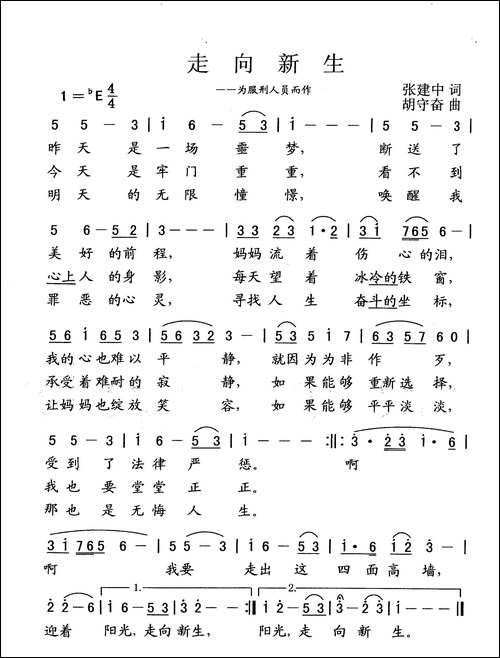 走向新生
——为服刑人员而作
1=♭E 4/4
张建中 词
胡守奋 曲
5 5 — 3 | i 6 — 5 3 | i — — — | 5 5 — 3 |
昨 天 是 一 场 噩 梦, 断 送 了
今 天 是 牢 门 重 重, 看 不 到
明 天 的 无 限 憧 憬, 唤 醒 我
5 6 — 5 2 | 3 — — — | 3 3 2 3 1 · 2 | 3 i 7 6 5 6 — |
美 好 的 前 程, 妈妈 流 着 伤 心 的 泪,
心上 人 的 身 影, 每天 望 着 冰冷的铁 窗,
罪 恶 的 心 灵, 寻找 人 生 奋斗的坐 标,
5 6 i 6 5 3 | 5 6 3 2 3 — | 5 3 5 i 5 7 | 6 3 5 7 6 0 |
我的 心 也 难以 平 静, 就因为为非 作 歹,
承受着难耐的 寂 静, 如 果能够 重新选 择,
让妈妈也绽放 笑 容, 如 果能够 平平淡 淡,
5 5 — 3 | i 2 — 5 3 | i — — — :||: 3 · 2 3 i · 6 |
受 到 了 法 律 严 惩。 啊
我 也 要 堂 堂 正 正。
那 也 是 无 悔 人 生。
3 i 7 6 5 6 — | 5 5 — 3 | 6 — 5 3 | i · 6 i 2 3 — |
啊 我要 走出 这 四 面 高 墙,
1. 2.
2 2 — 6 | i 6 — 5 3 | 3 2 — — :|| i 2 — 5 3 | 3 2 i — ||
迎着 阳光, 走向 新生, 阳光, 走 向 新 生。